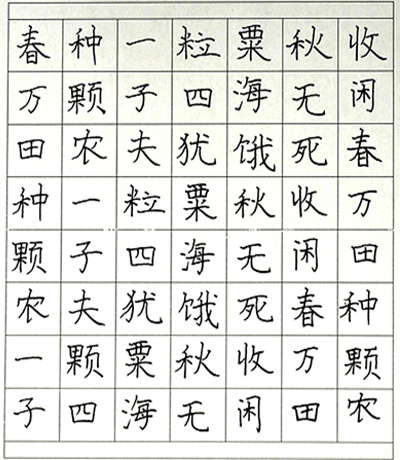 春种一粒粟秋收
万颗子四海无闲
田农夫犹饿死春
种一粒粟秋收万
颗子四海无闲田
农夫犹饿死春种
一颗粟秋收万颗
子四海无闲田农